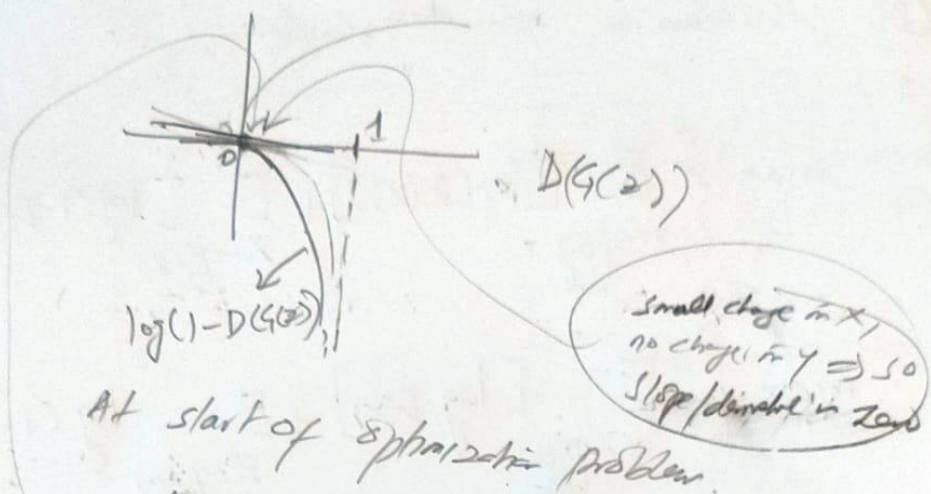 0
1
D(G(z))
log(1-D(G(z)))
small change in x,
no change in y ⇒ so
slope/derivative is zero
At start of optimization problem